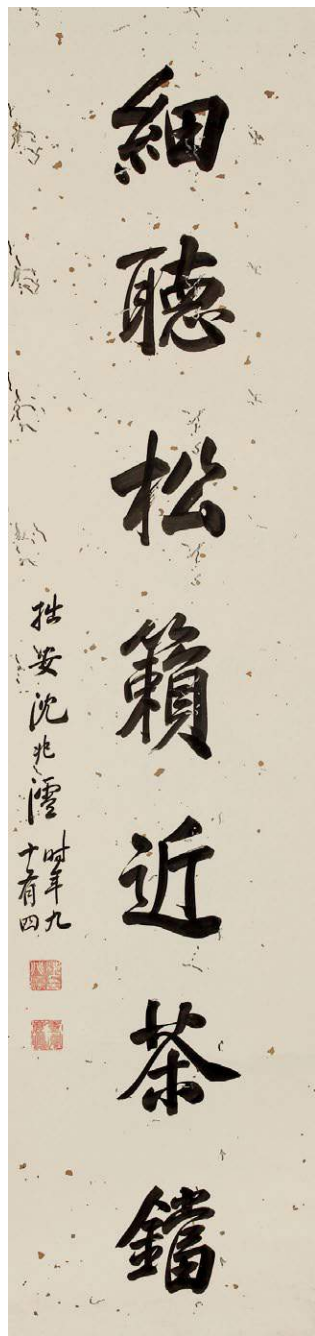 細聽松籟近茶鐺
拙安沈兆澐
時年九
十有四